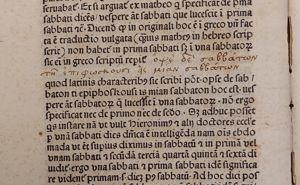 seruabat. Et si arguas ex matheo q̃ specificat de pma
sabbati dicēs. vespere aūt sabbati que lucescit ī prima
sabbati ⁊c̃. Dicen̄ q̇ in originali hoc ē ī greco vn̄ fa
cta ē traductio vulgata (quia matheꝰ in hebreo scrip
serit) non habet̄ in prima sabbati s̄ ī vna sabbatoꝝ
sic ei in greco scriptū reperio ὀψὲ δὲ σαββάτων
τῇ ἐπιφωσκούσῃ εἰς μίαν σαββάτων
quod latinis characterib̃s scribi pōt opse de sab/
baton ti epiphoskousi eis mian sabbaton hoc est. ves
pere aūt sabbatoꝝ q̃ lucessit ī vna sabbatoꝝ. nō ergo
specificat nec de primo nec de scdo. Et si adhuc posset
quis instare nā vt vult Hieronimꝰ ⁊ alij doctores ecclē
vna sabbati dies dn̄ica ē intelligēda nam ois ebdo
mada vt ⁊ supius diximus in sabbati ⁊ in primā
vnam sabbati ⁊ scd̄a ⁊ tercia quarta ⁊ quīta ⁊ sextā di
uidit̄. ergo vna sabbati ⁊ prima sabbati idē significa
re viden̄ primam.s. diem p̄ sabbatū. Ad hoc dici pos